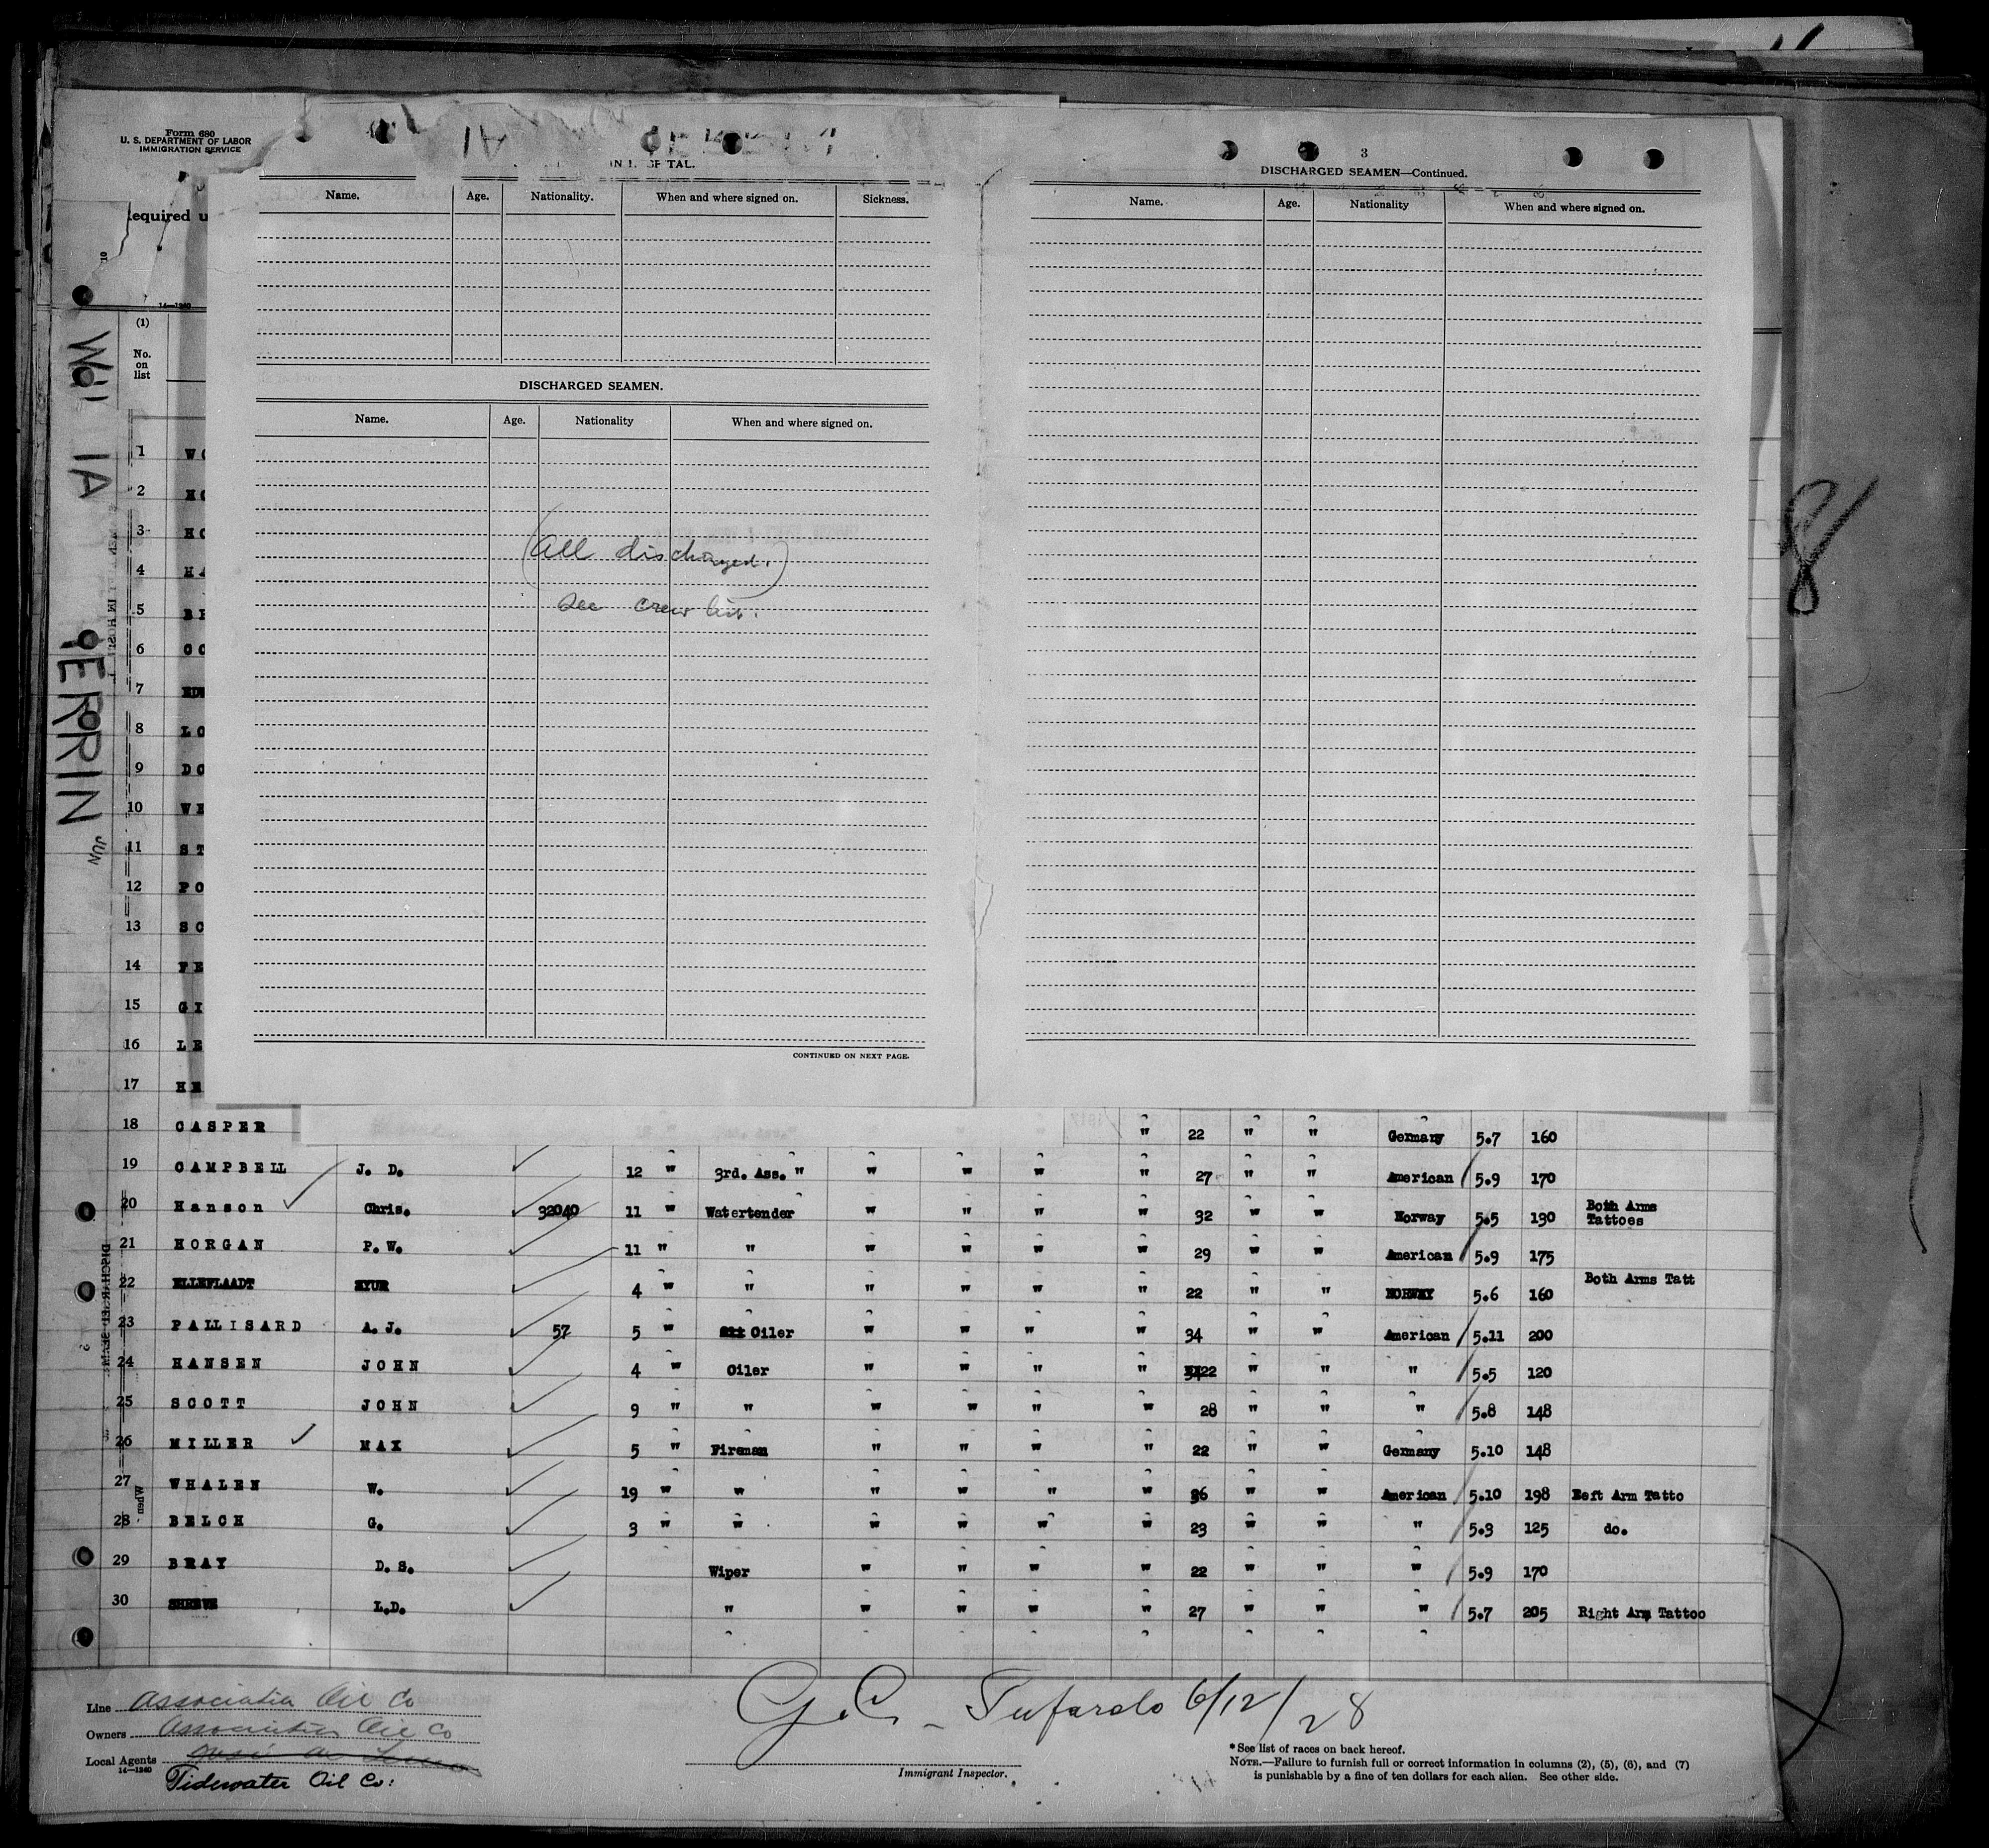 Form 680
U. S. DEPARTMENT OF LABOR
IMMIGRATION SERVICE
equired u
14—1240
(1)
No.
on
list
PERRIN
JUN
Name. Age. Nationality. When and where signed on. Sickness.
DISCHARGED SEAMEN.
Name. Age. Nationality When and where signed on.
(All discharged.)
see crew list.
CONTINUED ON NEXT PAGE.
3
DISCHARGED SEAMEN—Continued.
Name. Age. Nationality When and where signed on.
8
1 W O
2 H O
3 H O
4 H A
5
6 C C
7
8 L O
9 D O
10 W E
11 S T
12 P O
13 S C
14 F E
15 G I
16 L E
17 H E
18 CASPER " 22 " " Germany 5.7 160
19 CAMPBELL J. D. 12 " 3rd. Ass. " " " " " 27 " " American 5.9 170
20 Hanson Chris. 32040 11 " Watertender " " " " 32 " " Norway 5.5 190 Both Arms Tattoes
21 HORGAN P.W. 11 " " " " " " 29 " " American 5.9 175
22 ELLEFLAADT EYUR 4 " " " " " " 22 " " NORWAY 5.6 160 Both Arms Tatt
23 PALLISARD A.J. 57 5 " Oiler " " " " 34 " " American 5.11 200
24 HANSEN JOHN 4 " Oiler " " " " 22 " " " 5.5 120
25 SCOTT JOHN 9 " " " " " " 28 " " " 5.8 148
26 MILLER MAX 5 " Fireman " " " " 22 " " Germany 5.10 148
27 WHALEN W. 19 " " " " " " 36 " " American 5.10 198 Left Arm Tatto
28 BELCH G. 3 " " " " " " 23 " " " 5.3 125 do.
29 BRAY D. S. Wiper " " " " 22 " " " 5.9 170
30 SHREVE L.D. " " " " " 27 " " " 5.7 205 Right Arm Tattoo
Line Associated Oil Co
Owners Associated Oil Co
Local Agents
14—1240
Tidewater Oil Co:
G. C. Tufarolo 6/12/28
Immigrant Inspector.
* See list of races on back hereof.
NOTE.—Failure to furnish full or correct information in columns (2), (5), (6), and (7)
is punishable by a fine of ten dollars for each alien. See other side.